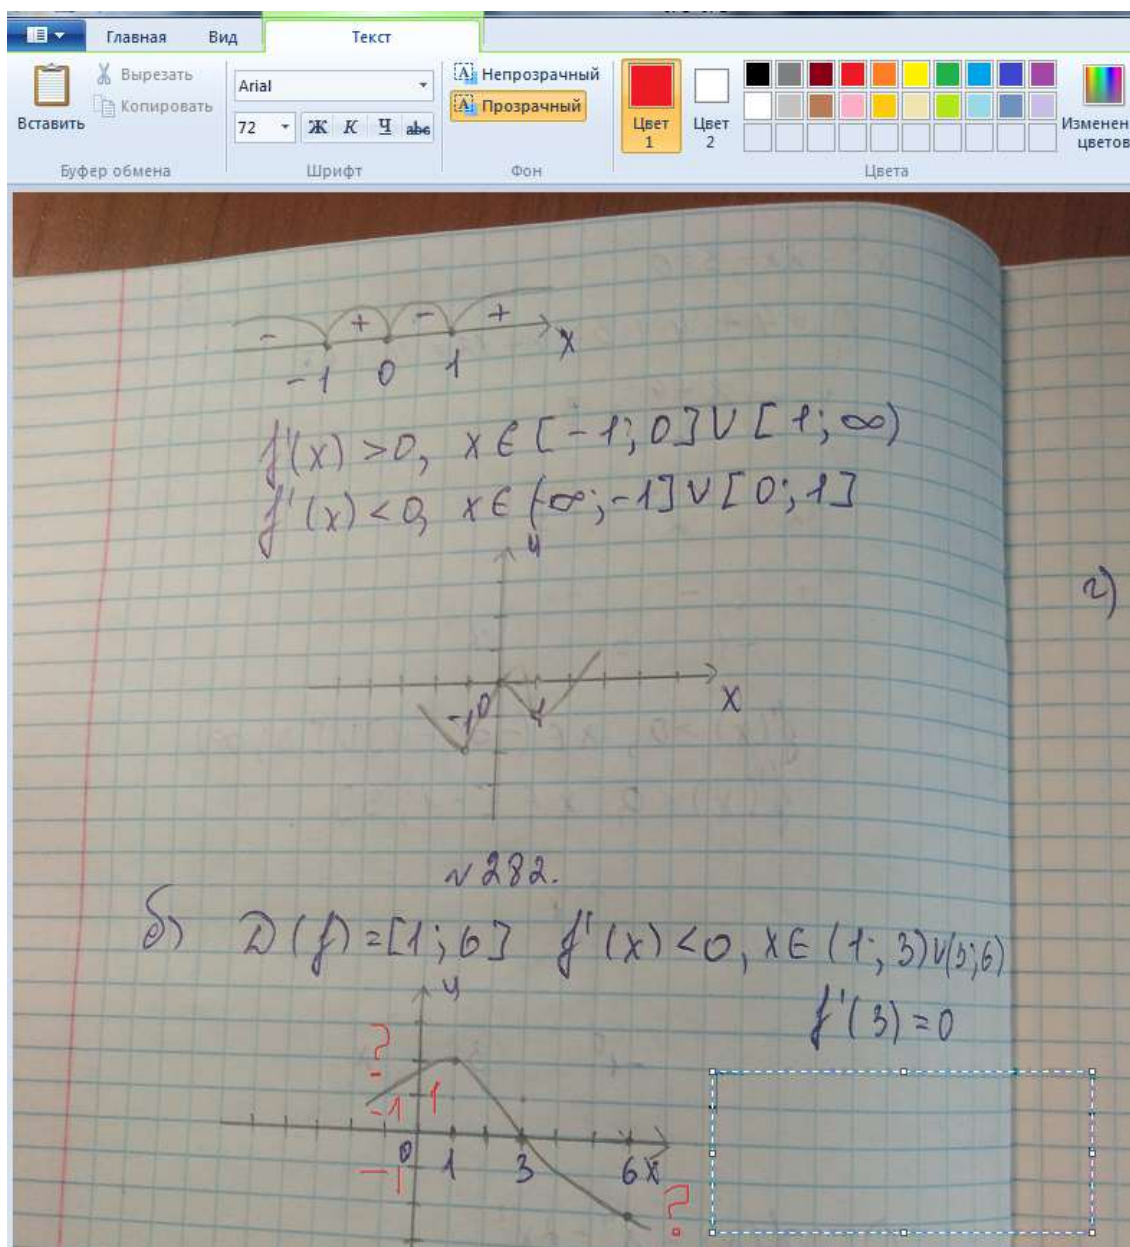 Главная Вид Текст
Вставить
Вырезать
Копировать
Буфер обмена
Arial
72 Ж К Ч abc
Шрифт
Непрозрачный
Прозрачный
Фон
Цвет 1
Цвет 2
Цвета
Изменен
цветов
- + - +
-1 0 1 x
f'(x) > 0, x ∈ [-1; 0] ∪ [1; ∞)
f'(x) < 0, x ∈ (-∞; -1] ∪ [0; 1]
y
г)
-1 0 1 x
№282.
б) D(f) = [1; 6] f'(x) < 0, x ∈ (1; 3) ∪ (3; 6)
f'(3) = 0
y
?
-1 1
0 1 3 6 x
-1
?